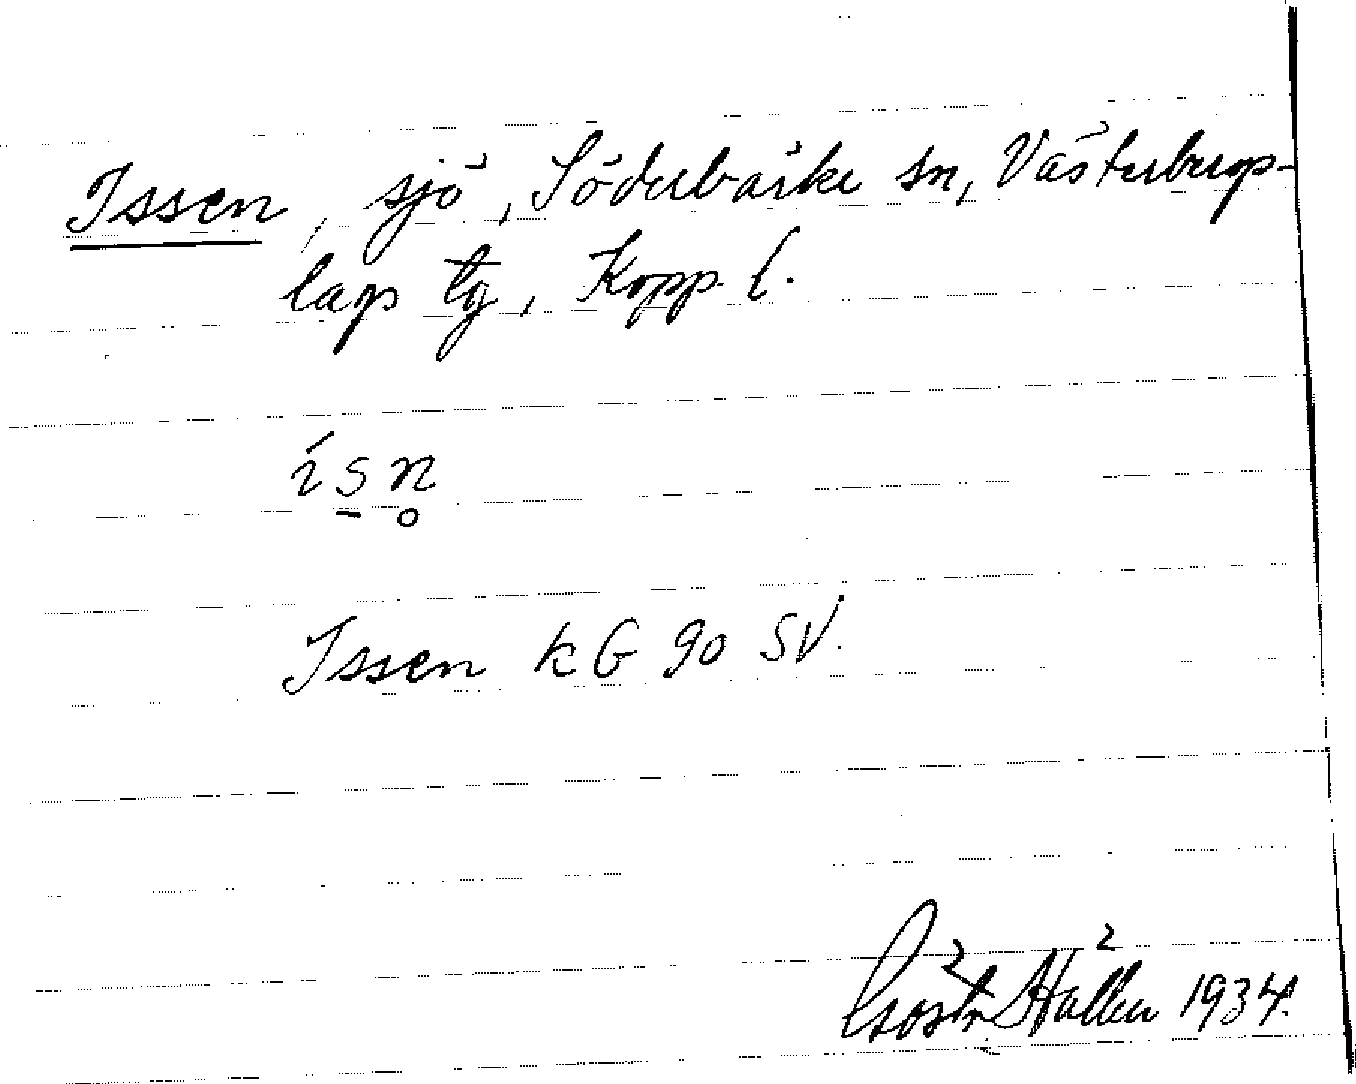 Issen, sjö, Söderbärke sn, Västerbergs-
lags tg, Kopp. l.
ísn̥
Issen kG 90 SV.
Gösta Hallén 1934.